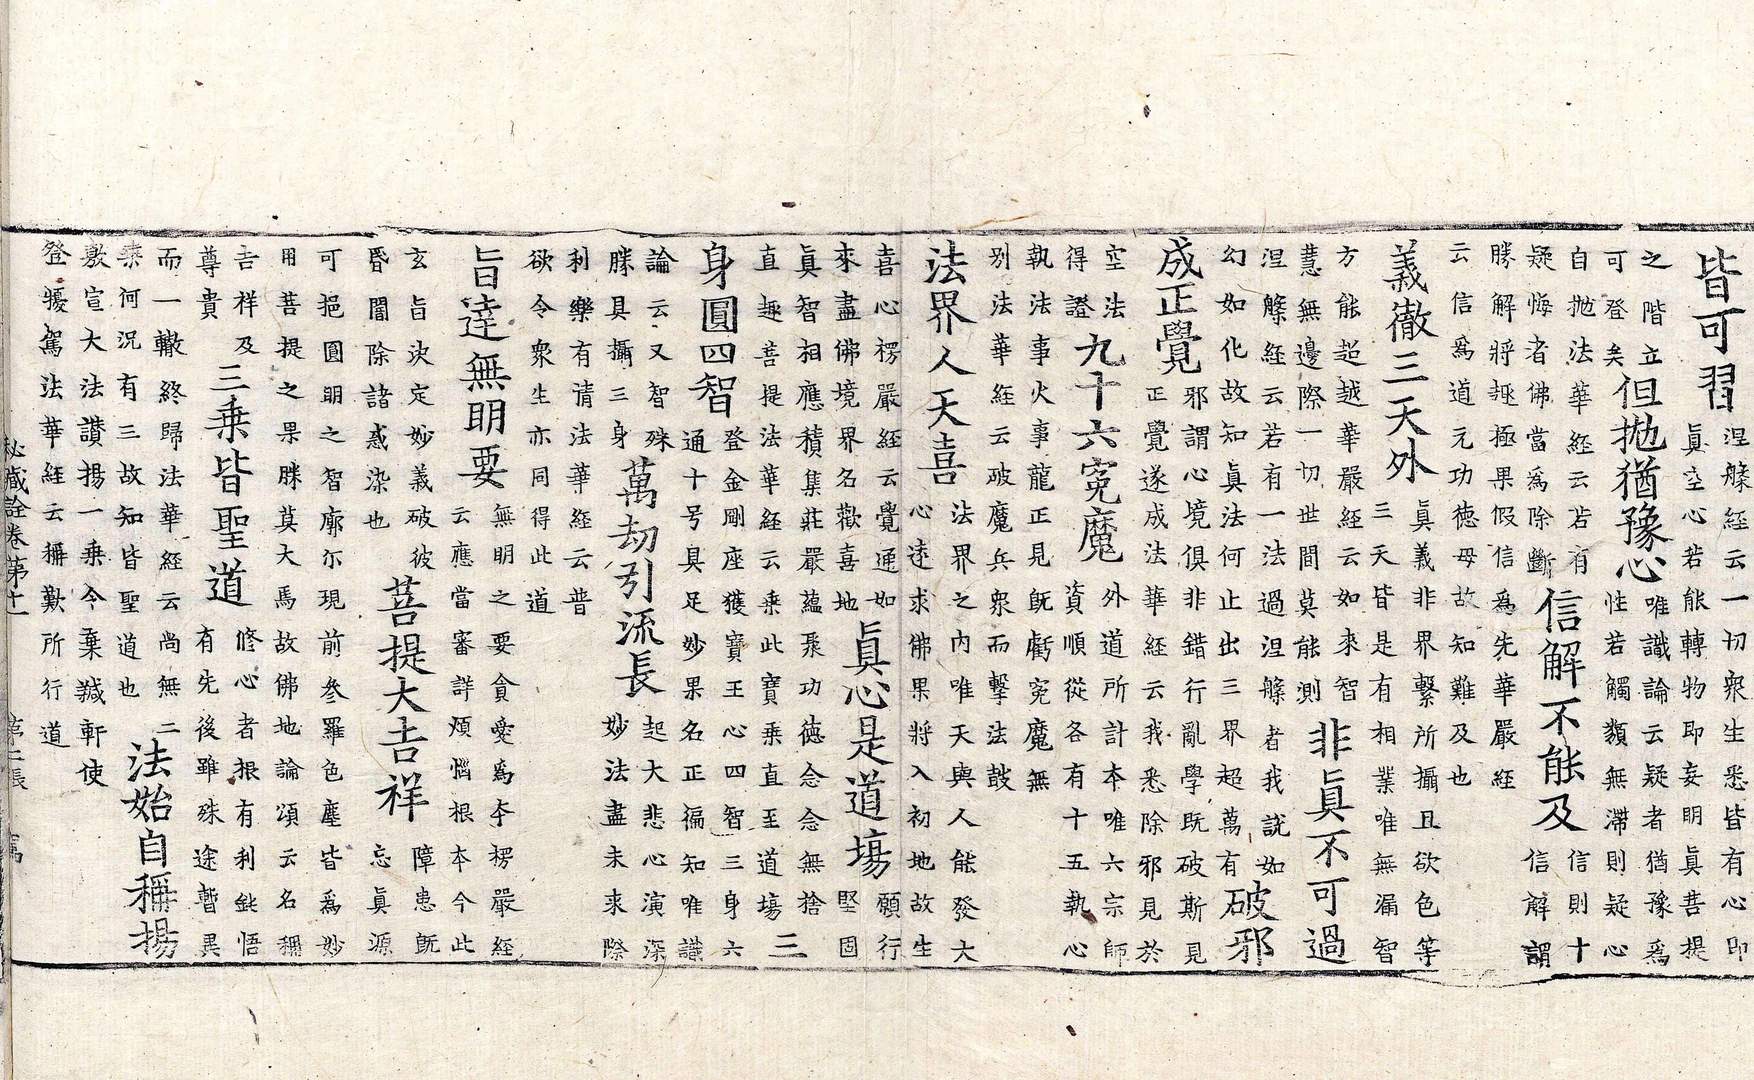 皆可習 涅槃經云一切衆生悉皆有心即
眞空心若能轉物即妄明眞菩提
之階立
可登矣 但拋猶豫心 唯識論云疑者猶豫爲
性若觸類無滯則疑心
自拋法華經云若有
疑悔者佛當爲除斷 信解不能及 信則十
信解謂
勝解將趣極果假信爲先華嚴經
云信爲道元功德母故知難及也
義徹三天外 眞義非界繫所攝且欲色等
三天皆是有相業唯無漏智
方能超越華嚴經云如來智
慧無邊際一切世間莫能測 非眞不可過
涅槃經云若有一法過涅槃者我説如
幻如化故知眞法何止出三界超萬有 破邪
成正覺 邪謂心境俱非錯行亂學既破斯見
正覺遂成法華經云我悉除邪見於
空法
得證 九十六寃魔 外道所計本唯六宗師
資順從各有十五執心
執法事火事龍正見既虧寃魔無
别法華經云破魔兵衆而擊法鼓
法界人天喜 法界之内唯天與人能發大
心遠求佛果將入初地故生
喜心楞嚴經云覺通如
來盡佛境界名歡喜地 眞心是道塲 願行
堅固
眞智相應積集莊嚴蘊聚功德念念無捨
直趣菩提法華經云乘此寶乘直至道塲 三
身圓四智 登金剛座獲寶王心四智三身六
通十号具足妙果名正徧知唯識
論云又智殊
勝具攝三身 萬劫引流長 起大悲心演深
妙法盡未來際
利樂有情法華經云普
欲令衆生亦同得此道
旨達無明要 無明之要貪愛爲本楞嚴經
云應當審詳煩惱根本今此
玄旨決定妙義破彼
昏闇除諸惑染也 菩提大吉祥 障患既
忘眞源
可挹圓明之智廓尔現前參羅色塵皆爲妙
用菩提之果勝莫大焉故佛地論頌云名稱
吉祥及
尊貴 三乘皆聖道 修心者根有利鈍悟
有先後雖殊途暫異
而一轍終歸法華經云尚無二
乘何況有三故知皆聖道也 法始自稱揚
敷宣大法讚揚一乘今棄軒使
登駕法華經云稱歎所行道
秘藏詮卷第十一 第二張